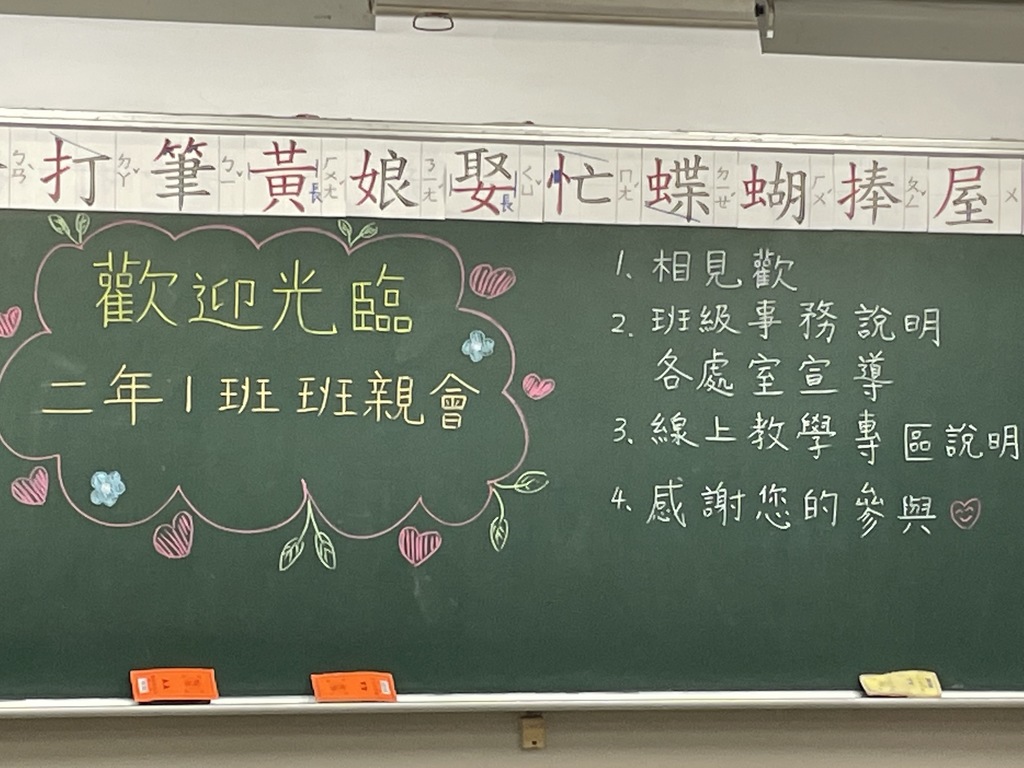 打 筆 黃 娘 娶 忙 蝶 蝴 捧 屋
歡迎光臨
二年1班 班親會
1. 相見歡
2. 班級事務說明
各處室宣導
3. 線上教學專區說明
4. 感謝您的參與